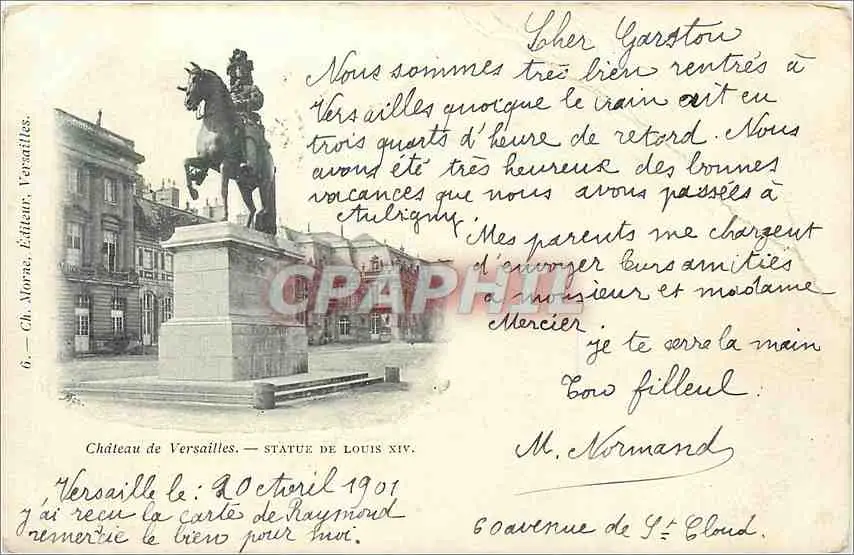 Cher Garston
Nous sommes très bien rentrés à
Versailles quoique le train ait eu
trois quarts d'heure de retord. Nous
avons été très heureux des bonnes
vacances que nous avons passées à
Aubigny.
Mes parents me chargent
d'envoyer leurs amitiés
à monsieur et madame
Mercier.
je te serre la main
Ton filleul.
M. Normand
60 avenue de St Cloud.
6. — Ch. Morne, Éditeur, Versailles.
CPAPHIL
Château de Versailles. — STATUE DE LOUIS XIV.
Versaille le : 20 Avril 1901
j'ai reçu la carte de Raymond
remercie le bien pour moi.